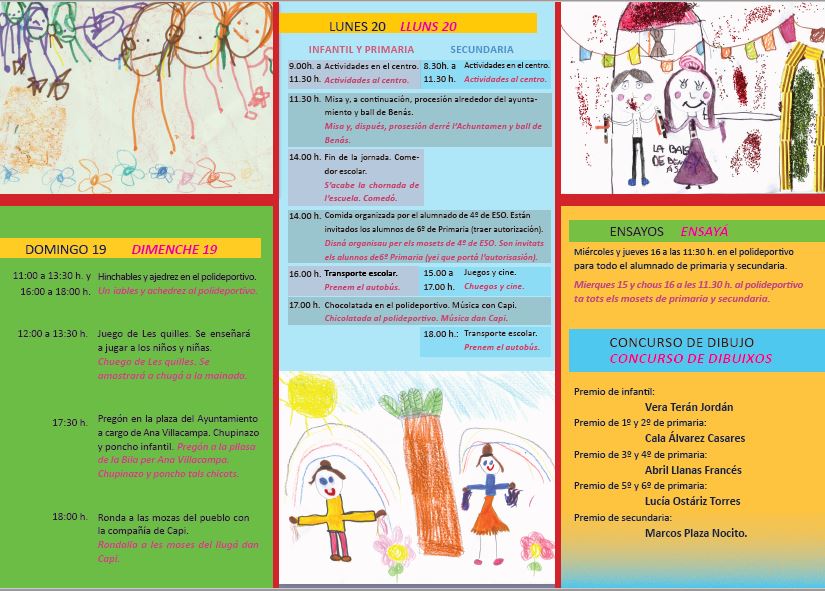 DOMINGO 19 DIMENCHE 19
11:00 a 13:30 h. y Hinchables y ajedrez en el polideportivo.
16:00 a 18:00 h. Un iables y achedrez al polideportivo.
12:00 a 13:30 h. Juego de Les quilles. Se enseñará
a jugar a los niños y niñas.
Chuego de Les quilles. Se
amostrará a chugá a la mainada.
17:30 h. Pregón en la plaza del Ayuntamiento
a cargo de Ana Villacampa. Chupinazo
y poncho infantil. Pregón a la pllasa
de la Bila per Ana Villacampa.
Chupinazo y poncho tals chicots.
18:00 h. Ronda a las mozas del pueblo con
la compañía de Capi.
Rondalla a les moses del llugá dan
Capi.
LUNES 20 LLUNS 20
INFANTIL Y PRIMARIA SECUNDARIA
9.00h. a Actividades en el centro. 8.30h. a Actividades en el centro.
11.30 h. Actividades al centro. 11.30 h. Actividades al centro.
11.30 h. Misa y, a continuación, procesión alrededor del ayunta-
miento y ball de Benás.
Misa y, dispués, prosesión derré l'Achuntamen y ball de
Benás.
14.00 h. Fin de la jornada. Come-
dor escolar.
S'acabe la chornada de
l'escuela. Comedó.
14.00 h. Comida organizada por el alumnado de 4º de ESO. Están
invitados los alumnos de 6º de Primaria (traer autorización).
Disná organisau per els mosets de 4º de ESO. Son invitats
els alumnos de6º Primaria (yei que portá l'autorisasión).
16.00 h. Transporte escolar. 15.00 a Juegos y cine.
Prenem el autobús. 17.00 h. Chuegos y cine.
17.00 h. Chocolatada en el polideportivo. Música con Capi.
Chicolatada al polideportivo. Música dan Capi.
18.00 h.: Transporte escolar.
Prenem el autobús.
LA BALL
DE BEN
AS
ENSAYOS ENSAYÁ
Miércoles y jueves 16 a las 11:30 h. en el polideportivo
para todo el alumnado de primaria y secundaria.
Mierques 15 y chous 16 a les 11.30 h. al polideportivo
ta tots els mosets de primaria y secundaria.
CONCURSO DE DIBUJO
CONCURSO DE DIBUIXOS
Premio de infantil:
Vera Terán Jordán
Premio de 1º y 2º de primaria:
Cala Álvarez Casares
Premio de 3º y 4º de primaria:
Abril Llanas Francés
Premio de 5º y 6º de primaria:
Lucía Ostáriz Torres
Premio de secundaria:
Marcos Plaza Nocito.